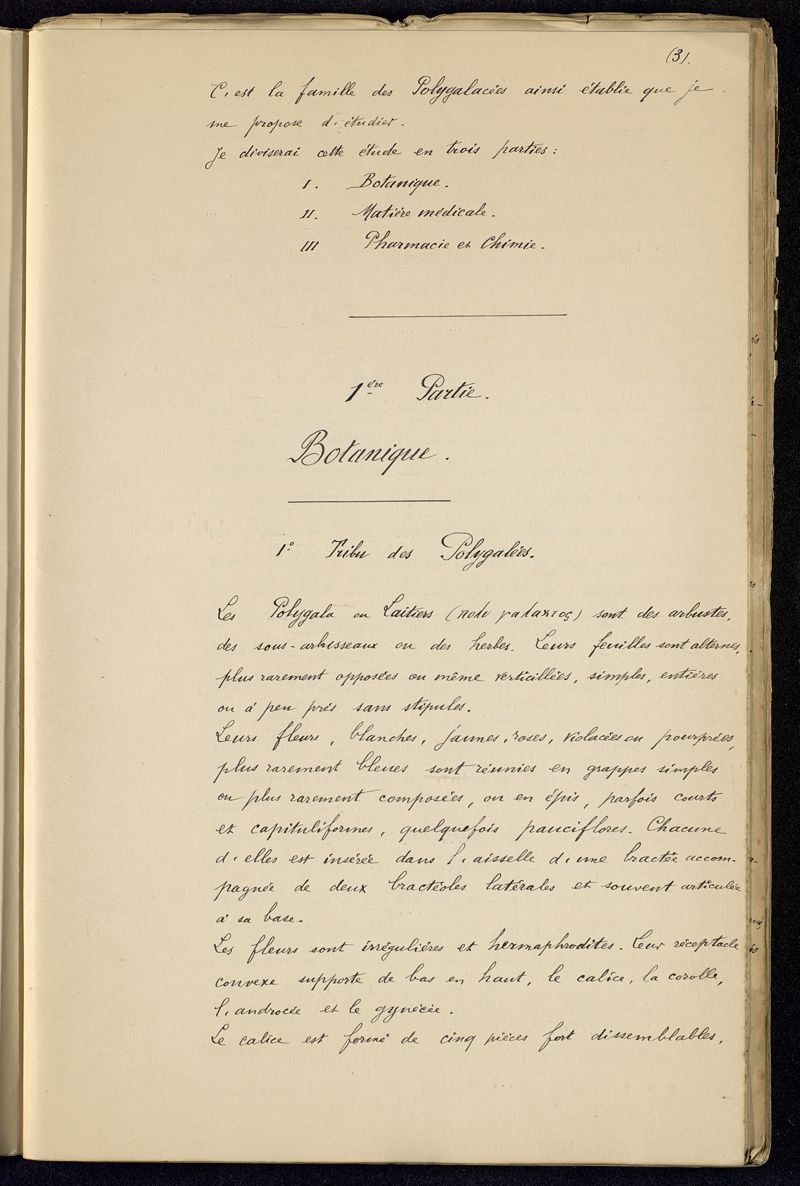 (3).
C'est la famille des Polygalacées ainsi établie que je
me propose d'étudier.
Je diviserai cette étude en trois parties :
I. Botanique.
II. Matière médicale.
III Pharmacie et Chimie.
1ère Partie.
Botanique.
1° Tribu des Polygalées.
Les Polygala ou Laitiers (πολυ γαλακτος) sont des arbustes,
des sous-arbrisseaux ou des herbes. Leurs feuilles sont alternes,
plus rarement opposées ou même verticillées, simples, entières
ou à peu près sans stipules.
Leurs fleurs, blanches, jaunes, roses, violacées ou pourprées,
plus rarement bleues sont réunies en grappes simples
ou plus rarement composées, ou en épis, parfois courts
et capituliformes, quelquefois pauciflores. Chacune
d'elles est insérée dans l'aisselle d'une bractée accom-
pagnée de deux bractéoles latérales et souvent articulée
à sa base.
Les fleurs sont irrégulières et hermaphrodites. Leur réceptacle
convexe supporte de bas en haut, le calice, la corolle,
l'androcée et le gynécée.
Le calice est formé de cinq pièces fort dissemblables,